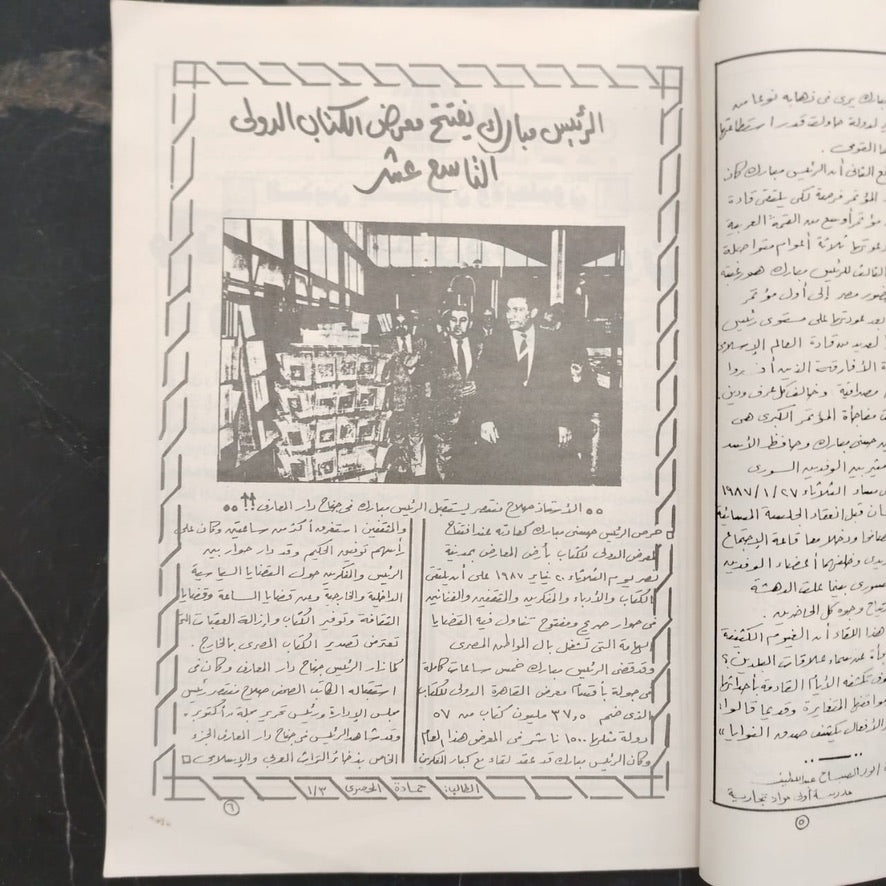 الرئيس مبارك يفتتح معرض الكتاب الدولى
التاسع عشر
الأستاذ صلاح منتصر يستقبل الرئيس مبارك فى جناح دار المعارف !!
حرص الرئيس حسنى مبارك كعادته عند افتتاح
المعرض الدولى للكتاب بأرض المعارض بمدينة
نصر يوم الثلاثاء ٢٠ يناير ١٩٨٧ على أن يلتقى
بالكتاب والأدباء والمفكرين والمثقفين والفنانين
فى حوار صريح ومفتوح تناول فيه القضايا
الهامة التى تشغل بال المواطن المصرى
وقد قضى الرئيس مبارك خمس ساعات كاملة
فى جولة بأقسام معرض القاهرة الدولى للكتاب
الذى ضم ٣٧,٥ مليون كتاب من ٥٧
دولة مثلها ١٥٠٠ ناشر فى المعرض هذا العام
وكان الرئيس مبارك قد عقد لقاء مع كبار المفكرين
والمثقفين استغرق أكثر من ساعتين وكان على
رأسهم توفيق الحكيم وقد دار حوار بين
الرئيس والمفكرين حول القضايا السياسية
الداخلية والخارجية وعن قضايا الساعة وقضايا
الثقافة وتوفير الكتاب وإزالة العقبات التى
تعترض تصدير الكتاب المصرى بالخارج.
كما زار الرئيس جناح دار المعارف وكان فى
استقباله الكاتب الصحفى صلاح منتصر رئيس
مجلس الإدارة ورئيس تحرير مجلة "أكتوبر"
وقد شاهد الرئيس فى جناح دار المعارف الجزء
الخاص بذخائر التراث العربى والإسلامى
الطالب: حمادة الحصرى ١/٣
٦
مبارك يرى فى ذهابه نوعا من
لدولة حاولت قدر استطاعتها
القومى.
الثانى أن الرئيس مبارك كان
المؤتمر فرصة لكى يلتقى قادة
مؤتمر أوسع من القمة العربية
دعوتها ثلاثة أعوام متواصلة
الثالث للرئيس مبارك هو رغبته
حضور مصر إلى أول مؤتمر
بعد عودتها على مستوى رئيس
العديد من قادة العالم الإسلامى
الأفارقة الذين
مصداقية وخالف كل عرف ودين.
مفاجأة المؤتمر الكبرى هى
حسنى مبارك وحافظ الأسد
بين الوفدين السورى
مساء الثلاثاء ٢٧/١/١٩٨٧
قبل انعقاد الجلسة المسائية
ودخلا معا قاعة الاجتماع
وخلفهما أعضاء الوفدين
السورى بينما علت الدهشة
وجوه كل الحاضرين.
هذا اللقاء أن الغيوم الكثيفة
سماء علاقات البلدين؟
تكشفه الأيام القادمة بأحداثها
المتغايرة وقديما قالوا:
الأفعال يكشف صدق النوايا»
أنور الصباح عبد اللطيف
مدرسة أولى مواد تجارية
٥